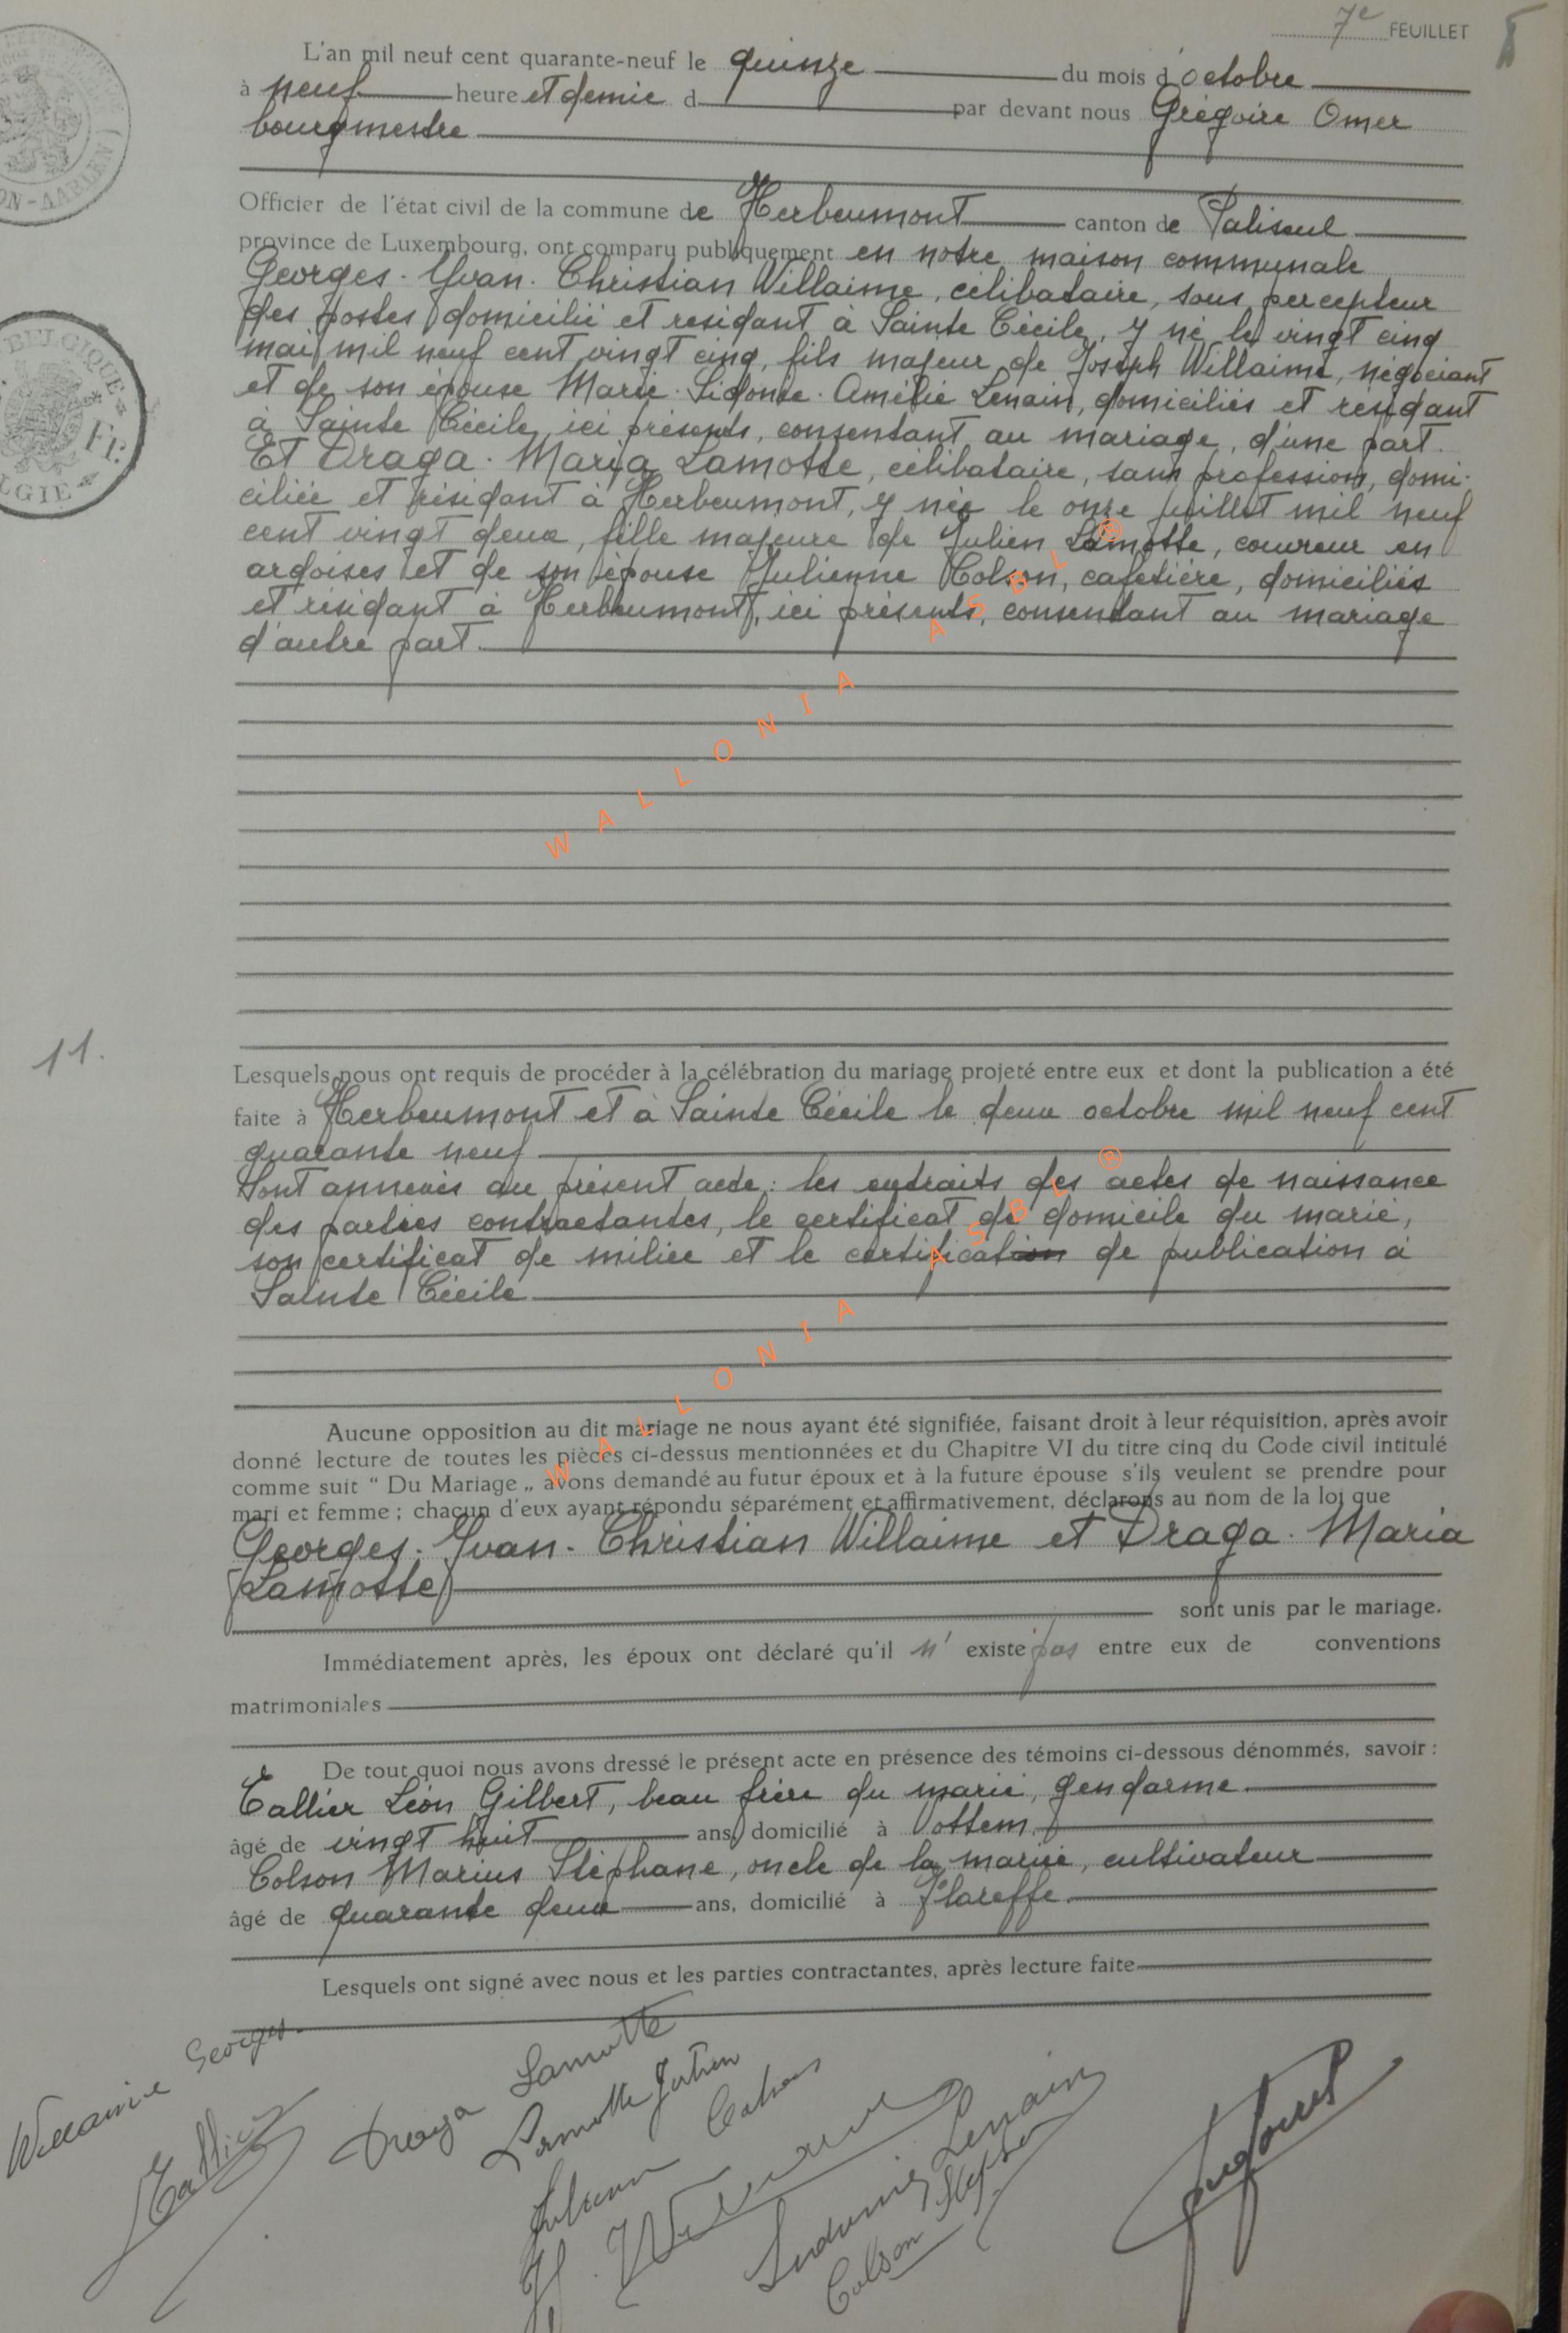 7e FEUILLET
L'an mil neuf cent quarante-neuf le quinze du mois d'octobre
à neuf heure et demie d par devant nous Grégoire Omer
bourgmestre
Officier de l'état civil de la commune de Herbeumont canton de Paliseul
province de Luxembourg, ont comparu publiquement en notre maison communale
Georges - Yvan - Christian Willaime, célibataire, sous percepteur
des postes domicilié et résidant à Sainte Cécile, y né le vingt cinq
mai mil neuf cent vingt cinq, fils majeur de Joseph Willaime, négociant
et de son épouse Marie - Sidonie - Amélie Lenain, domiciliés et résidant
à Sainte Cécile, ici présents, consentant au mariage, d'une part.
Et Draga - Maria Lamotte, célibataire, sans profession, domi-
ciliée et résidant à Herbeumont, y née le onze juillet mil neuf
cent vingt deux, fille majeure de Julien Lamotte, couvreur en
ardoises et de son épouse Julienne Colson, cafetière, domiciliés
et résidant à Herbeumont, ici présents, consentant au mariage
d'autre part.
WALLONIA ASBL ®
11.
Lesquels nous ont requis de procéder à la célébration du mariage projeté entre eux et dont la publication a été
faite à Herbeumont et à Sainte Cécile le deux octobre mil neuf cent
quarante neuf
Sont annexés au présent acte : les extraits des actes de naissance
des parties contractantes, le certificat de domicile du marié,
son certificat de milice et le certification de publication à
Sainte Cécile
WALLONIA ASBL ®
Aucune opposition au dit mariage ne nous ayant été signifiée, faisant droit à leur réquisition, après avoir
donné lecture de toutes les pièces ci-dessus mentionnées et du Chapitre VI du titre cinq du Code civil intitulé
comme suit “ Du Mariage „ avons demandé au futur époux et à la future épouse s'ils veulent se prendre pour
mari et femme ; chacun d'eux ayant répondu séparément et affirmativement, déclarons au nom de la loi que
Georges - Yvan - Christian Willaime et Draga - Maria
Lamotte
sont unis par le mariage.
Immédiatement après, les époux ont déclaré qu'il n' existe pas entre eux de conventions
matrimoniales
De tout quoi nous avons dressé le présent acte en présence des témoins ci-dessous dénommés, savoir :
Tallier Léon Gilbert, beau frère du marié, gendarme
âgé de vingt huit ans, domicilié à Vottem
Colson Marius Stéphane, oncle de la mariée, cultivateur
âgé de quarante deux ans, domicilié à Floreffe
Lesquels ont signé avec nous et les parties contractantes, après lecture faite
Willaime Georges
Tallier
Draga Lamotte
Lamotte Julien
Colson
Lenain
Colson